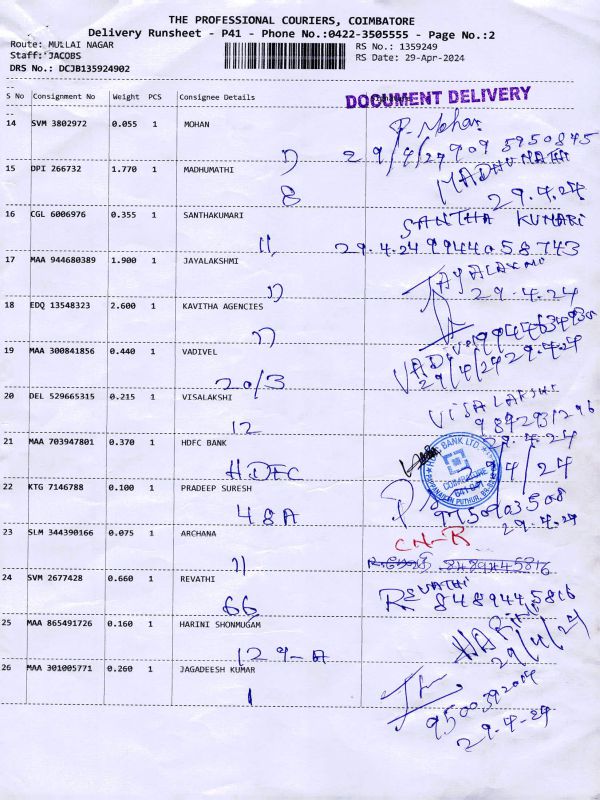 THE PROFESSIONAL COURIERS, COIMBATORE
Delivery Runsheet - P41 - Phone No.:0422-3505555 - Page No.:2
Route: MULLAI NAGAR
RS No.: 1359249
Staff: JACOBS
RS Date: 29-Apr-2024
DRS No.: DCJB135924902
S No Consignment No Weight PCS Consignee Details
DOCUMENT DELIVERY
14 SVM 3802972 0.055 1 MOHAN
P. Mohan
29/4/24 909 5950845
15 DPI 266732 1.770 1 MADHUMATHI
MADHUMATHI
8 29.4.24
16 CGL 6006976 0.355 1 SANTHAKUMARI
SANTHA KUMARI
11, 29.4.24 9944058743
17 MAA 944680389 1.900 1 JAYALAKSHMI
JAYALAXMI
29.4.24
18 EDQ 13548323 2.600 1 KAVITHA AGENCIES
19 MAA 300841856 0.440 1 VADIVEL
VADIVEL
29.4.24
20/3 29/4/24
20 DEL 529665315 0.215 1 VISALAKSHI
VISALAKSHI
12 9842931296
29.4.24
21 MAA 703947801 0.370 1 HDFC BANK
HDFC BANK LTD.
COIMBATORE
HDFC
22 KTG 7146788 0.100 1 PRADEEP SURESH
48A 9750903508
29.4.24
23 SLM 344390166 0.075 1 ARCHANA
CN-R
11 8489445816
24 SVM 2677428 0.660 1 REVATHI
REVATHI
66 8489445816
25 MAA 865491726 0.160 1 HARINI SHONMUGAM
HARINI
129-A 29/4/24
26 MAA 301005771 0.260 1 JAGADEESH KUMAR
1 9500392014
29-4-24